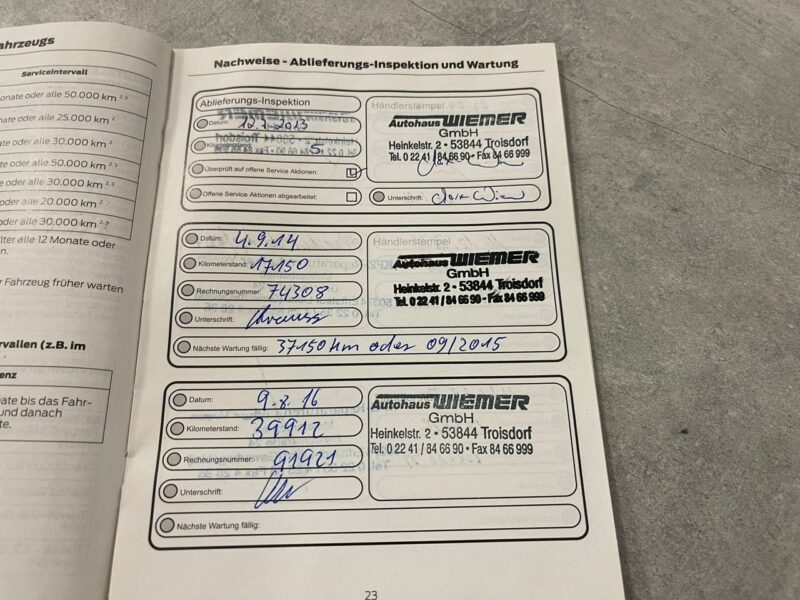 ahrzeugs
Serviceintervall
onate oder alle 50.000 km 2,3
ate oder alle 25.000 km
ate oder alle 30.000 km 2
ate oder alle 50.000 km 2,3
te oder alle 30.000 km 2,3
oder alle 20.000 km 2
oder alle 30.000 km 2,3
lter alle 12 Monate oder
en.
r Fahrzeug früher warten
rvallen (z.B. im
enz
ate bis das Fahr-
und danach
te.
Nachweise - Ablieferungs-Inspektion und Wartung
Ablieferungs-Inspektion
Datum: 12.7.2013
Kilometerstand: 5
Überprüft auf offene Service Aktionen:
Offene Service Aktionen abgearbeitet:
Händlerstempel
Autohaus WIEMER
GmbH
Heinkelstr. 2 • 53844 Troisdorf
Tel. 0 22 41 / 84 66 90 • Fax 84 66 999
Unterschrift:
Datum: 4.9.14
Kilometerstand: 17150
Rechnungsnummer: 74308
Unterschrift:
Händlerstempel
Autohaus WIEMER
GmbH
Heinkelstr. 2 • 53844 Troisdorf
Tel. 0 22 41 / 84 66 90 • Fax 84 66 999
Nächste Wartung fällig: 37150 km oder 09/2015
Datum: 9.8.16
Kilometerstand: 39912
Rechnungsnummer: 91921
Unterschrift:
Autohaus WIEMER
GmbH
Heinkelstr. 2 • 53844 Troisdorf
Tel. 0 22 41 / 84 66 90 • Fax 84 66 999
Nächste Wartung fällig:
23